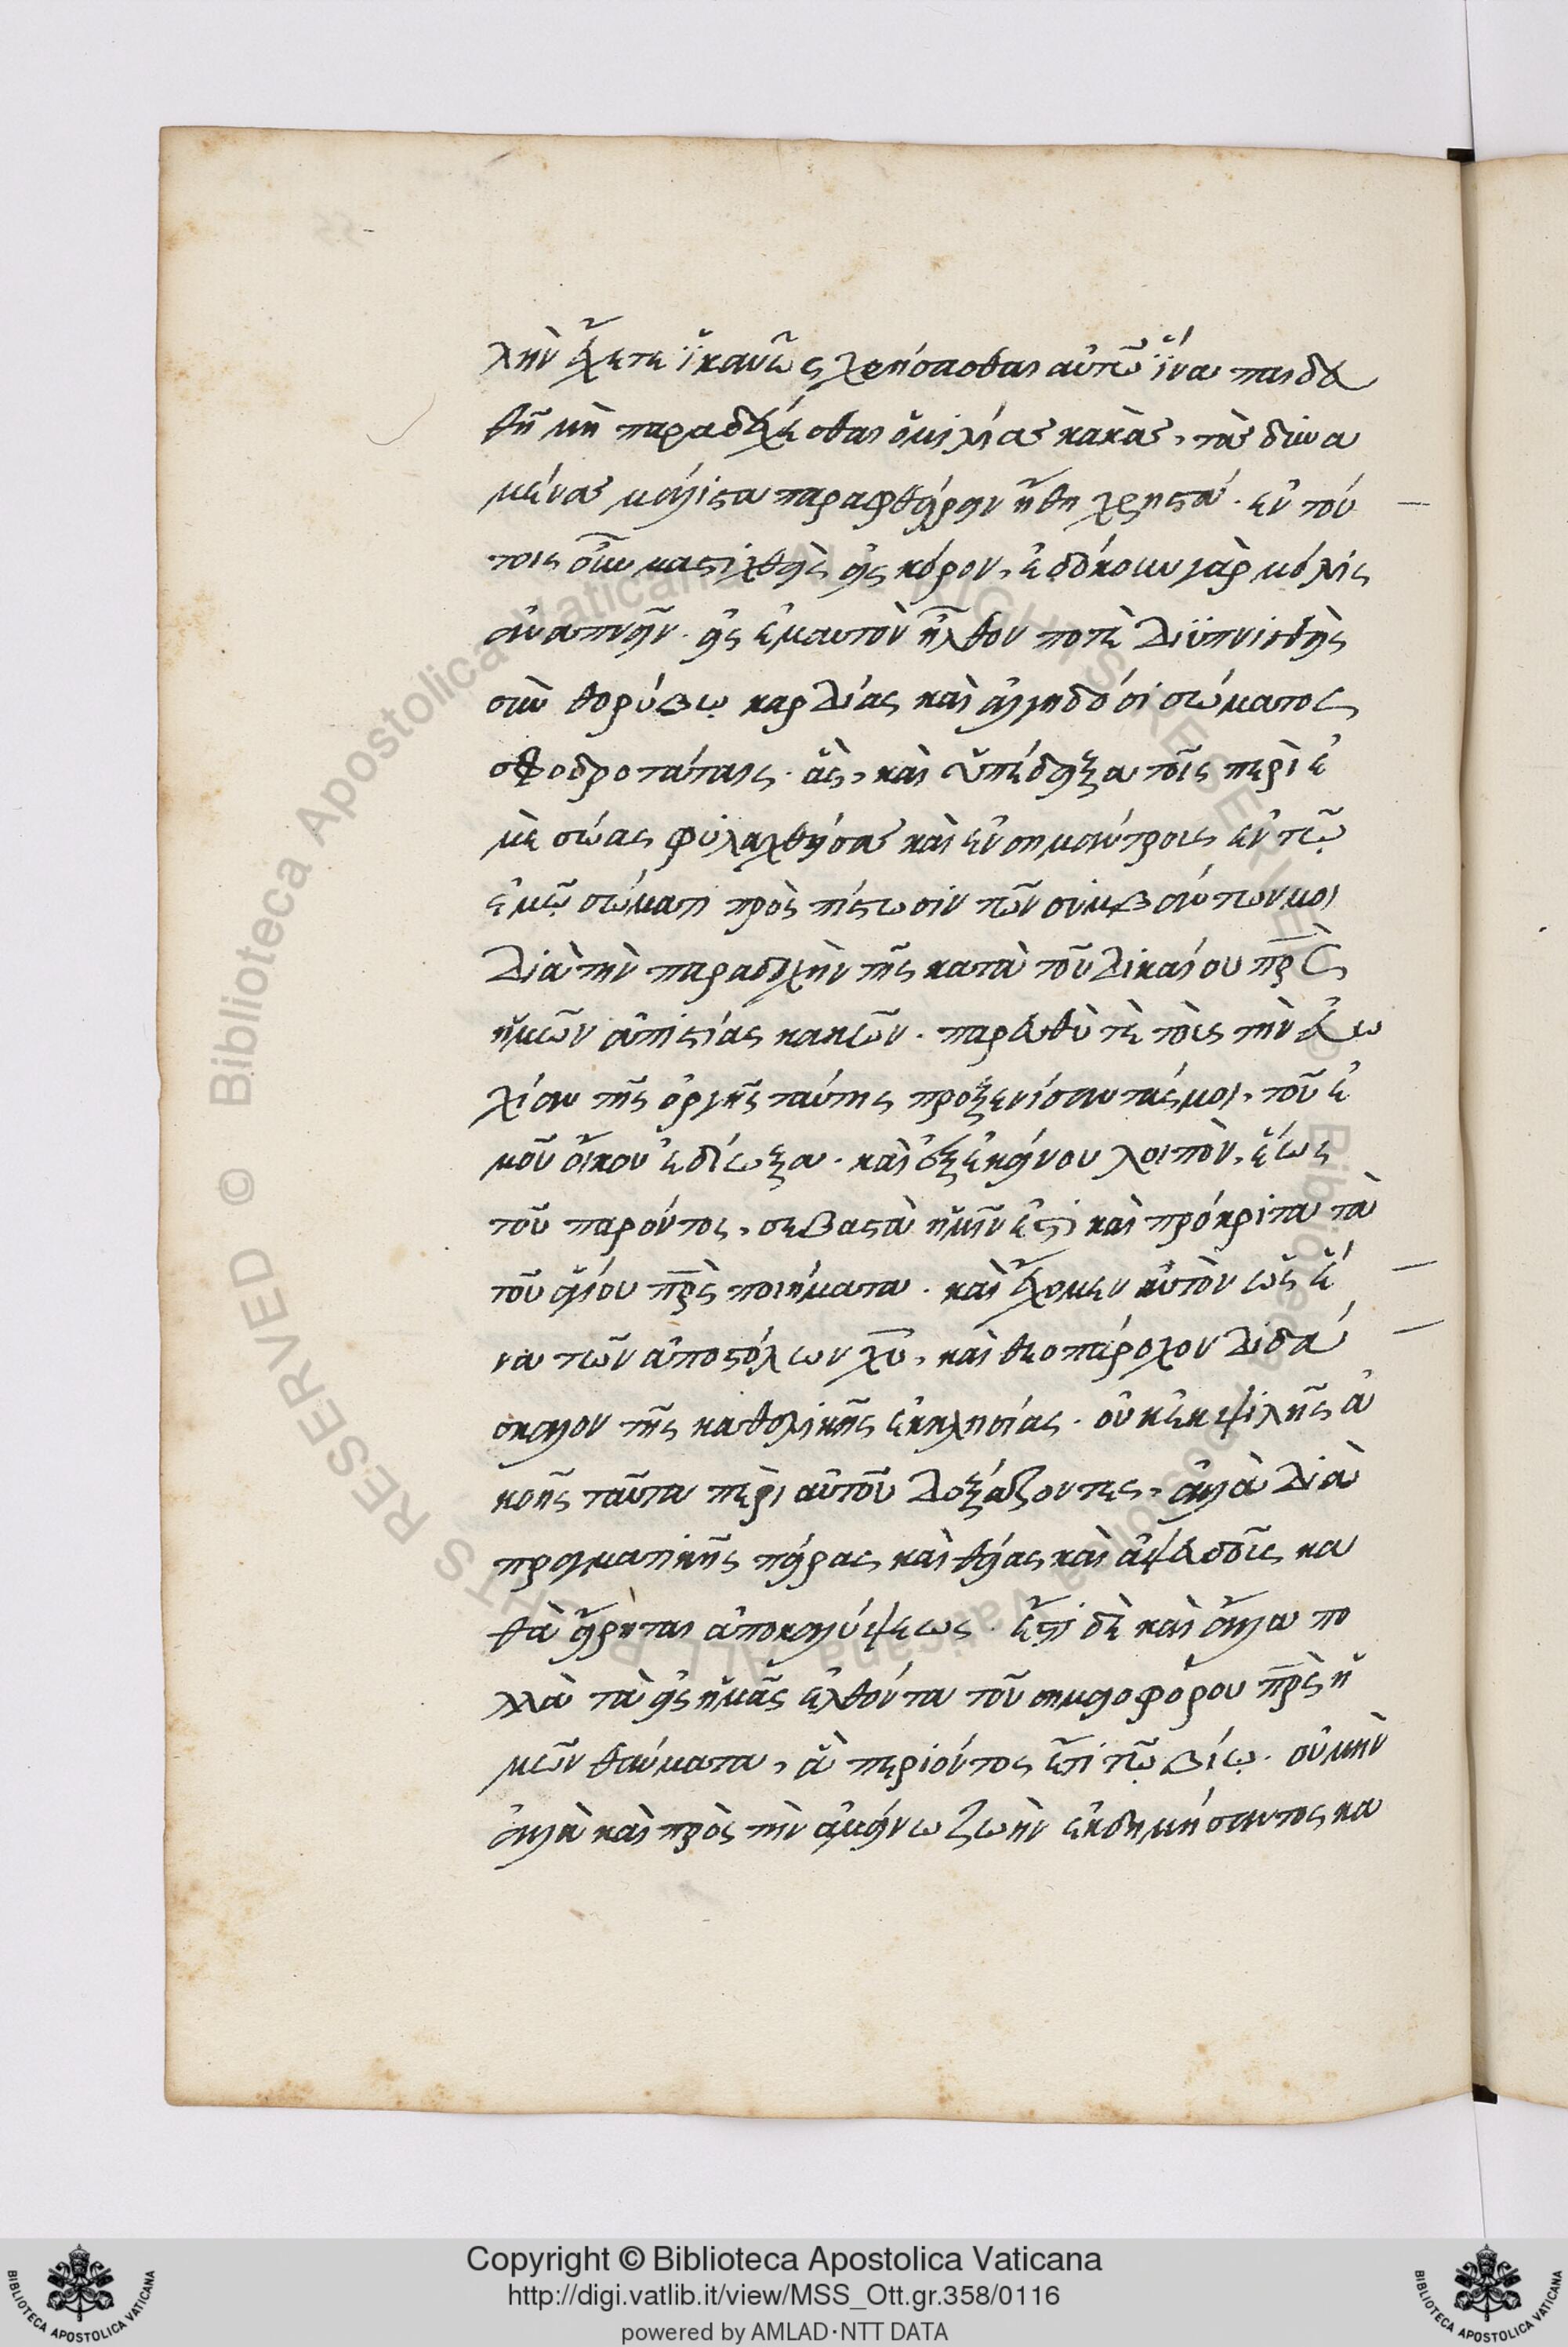 λὴν ἔχετε ἱκανῶς χρήσασθαι αὐτῶ ἵνα παιδευ
θῆ μὴ παραδέχεσθαι ὁμιλίας κακάς, τὰς δυνα
μένας μάλιστα παραφθείρειν ἤθη χρηστά. ἐν τού
τοις οὖν μαστιχθεὶς εἰς κόρον, ἐδόκουν γὰρ μόλις
ἀναπνεῖν. εἰς ἐμαυτὸν ἦλθον ποτὲ διϋπνισθεὶς
σὺν θορύβῳ καρδίας καὶ ἀλγηδόσι σώματος
σφοδροτάταις. ἃς, καὶ ὑπέδειξα τοῖς περὶ ἐ
μὲ σώας φυλαχθείσας καὶ ἐν σημάντροις ἐν τῷ
ἐμῷ σώματι πρὸς πίστωσιν τῶν συμβάντων μοι
διὰ τὴν παραδοχὴν τῆς κατὰ τοῦ δικαίου πρ̅ς
ἡμῶν ἀπιστίας κακῶν. παρευθύ τε τοὺς τὴν εὐω
χίαν τῆς ὀργῆς ταύτης προξενίσαντάς μοι, τοῦ ἐ
μοῦ οἴκου ἐδίωξα. καὶ ἐξ ἐκείνου λοιπὸν, ἕως
τοῦ παρόντος, σεβαστὰ ἡμῖν ἐστὶ καὶ πρόκριτα τὰ
τοῦ ἁγίου πρ̅ς ποιήματα. καὶ ἔχομεν αὐτὸν ὡς ἕ
να τῶν ἀποστόλων χυ̅, καὶ θεοπάροχον διδά
σκαλον τῆς καθολικῆς ἐκκλησίας. οὐκ ἐκ ψιλῆς ἀ
κοῆς ταῦτα περὶ αὐτοῦ δοξάζοντες, ἀλλὰ διὰ
πραγματικῆς πείρας καὶ θείας καὶ ἀψευδοῦς κα
θὰ εἴρηται ἀποκαλύψεως. ἔστι δὲ καὶ ἄλλα πο
λλὰ τὰ εἰς ἡμᾶς ἐλθόντα τοῦ σημειοφόρου πρ̅ς ἡ
μῶν θαύματα, ἃ περιόντος ἔτι τῷ βίῳ. οὐ μὴν
ἀλλὰ καὶ πρὸς τὴν ἀκείνω ζωὴν ἐκδημήσαντος κα
Copyright © Biblioteca Apostolica Vaticana
http://digi.vatlib.it/view/MSS_Ott.gr.358/0116
powered by AMLAD·NTT DATA